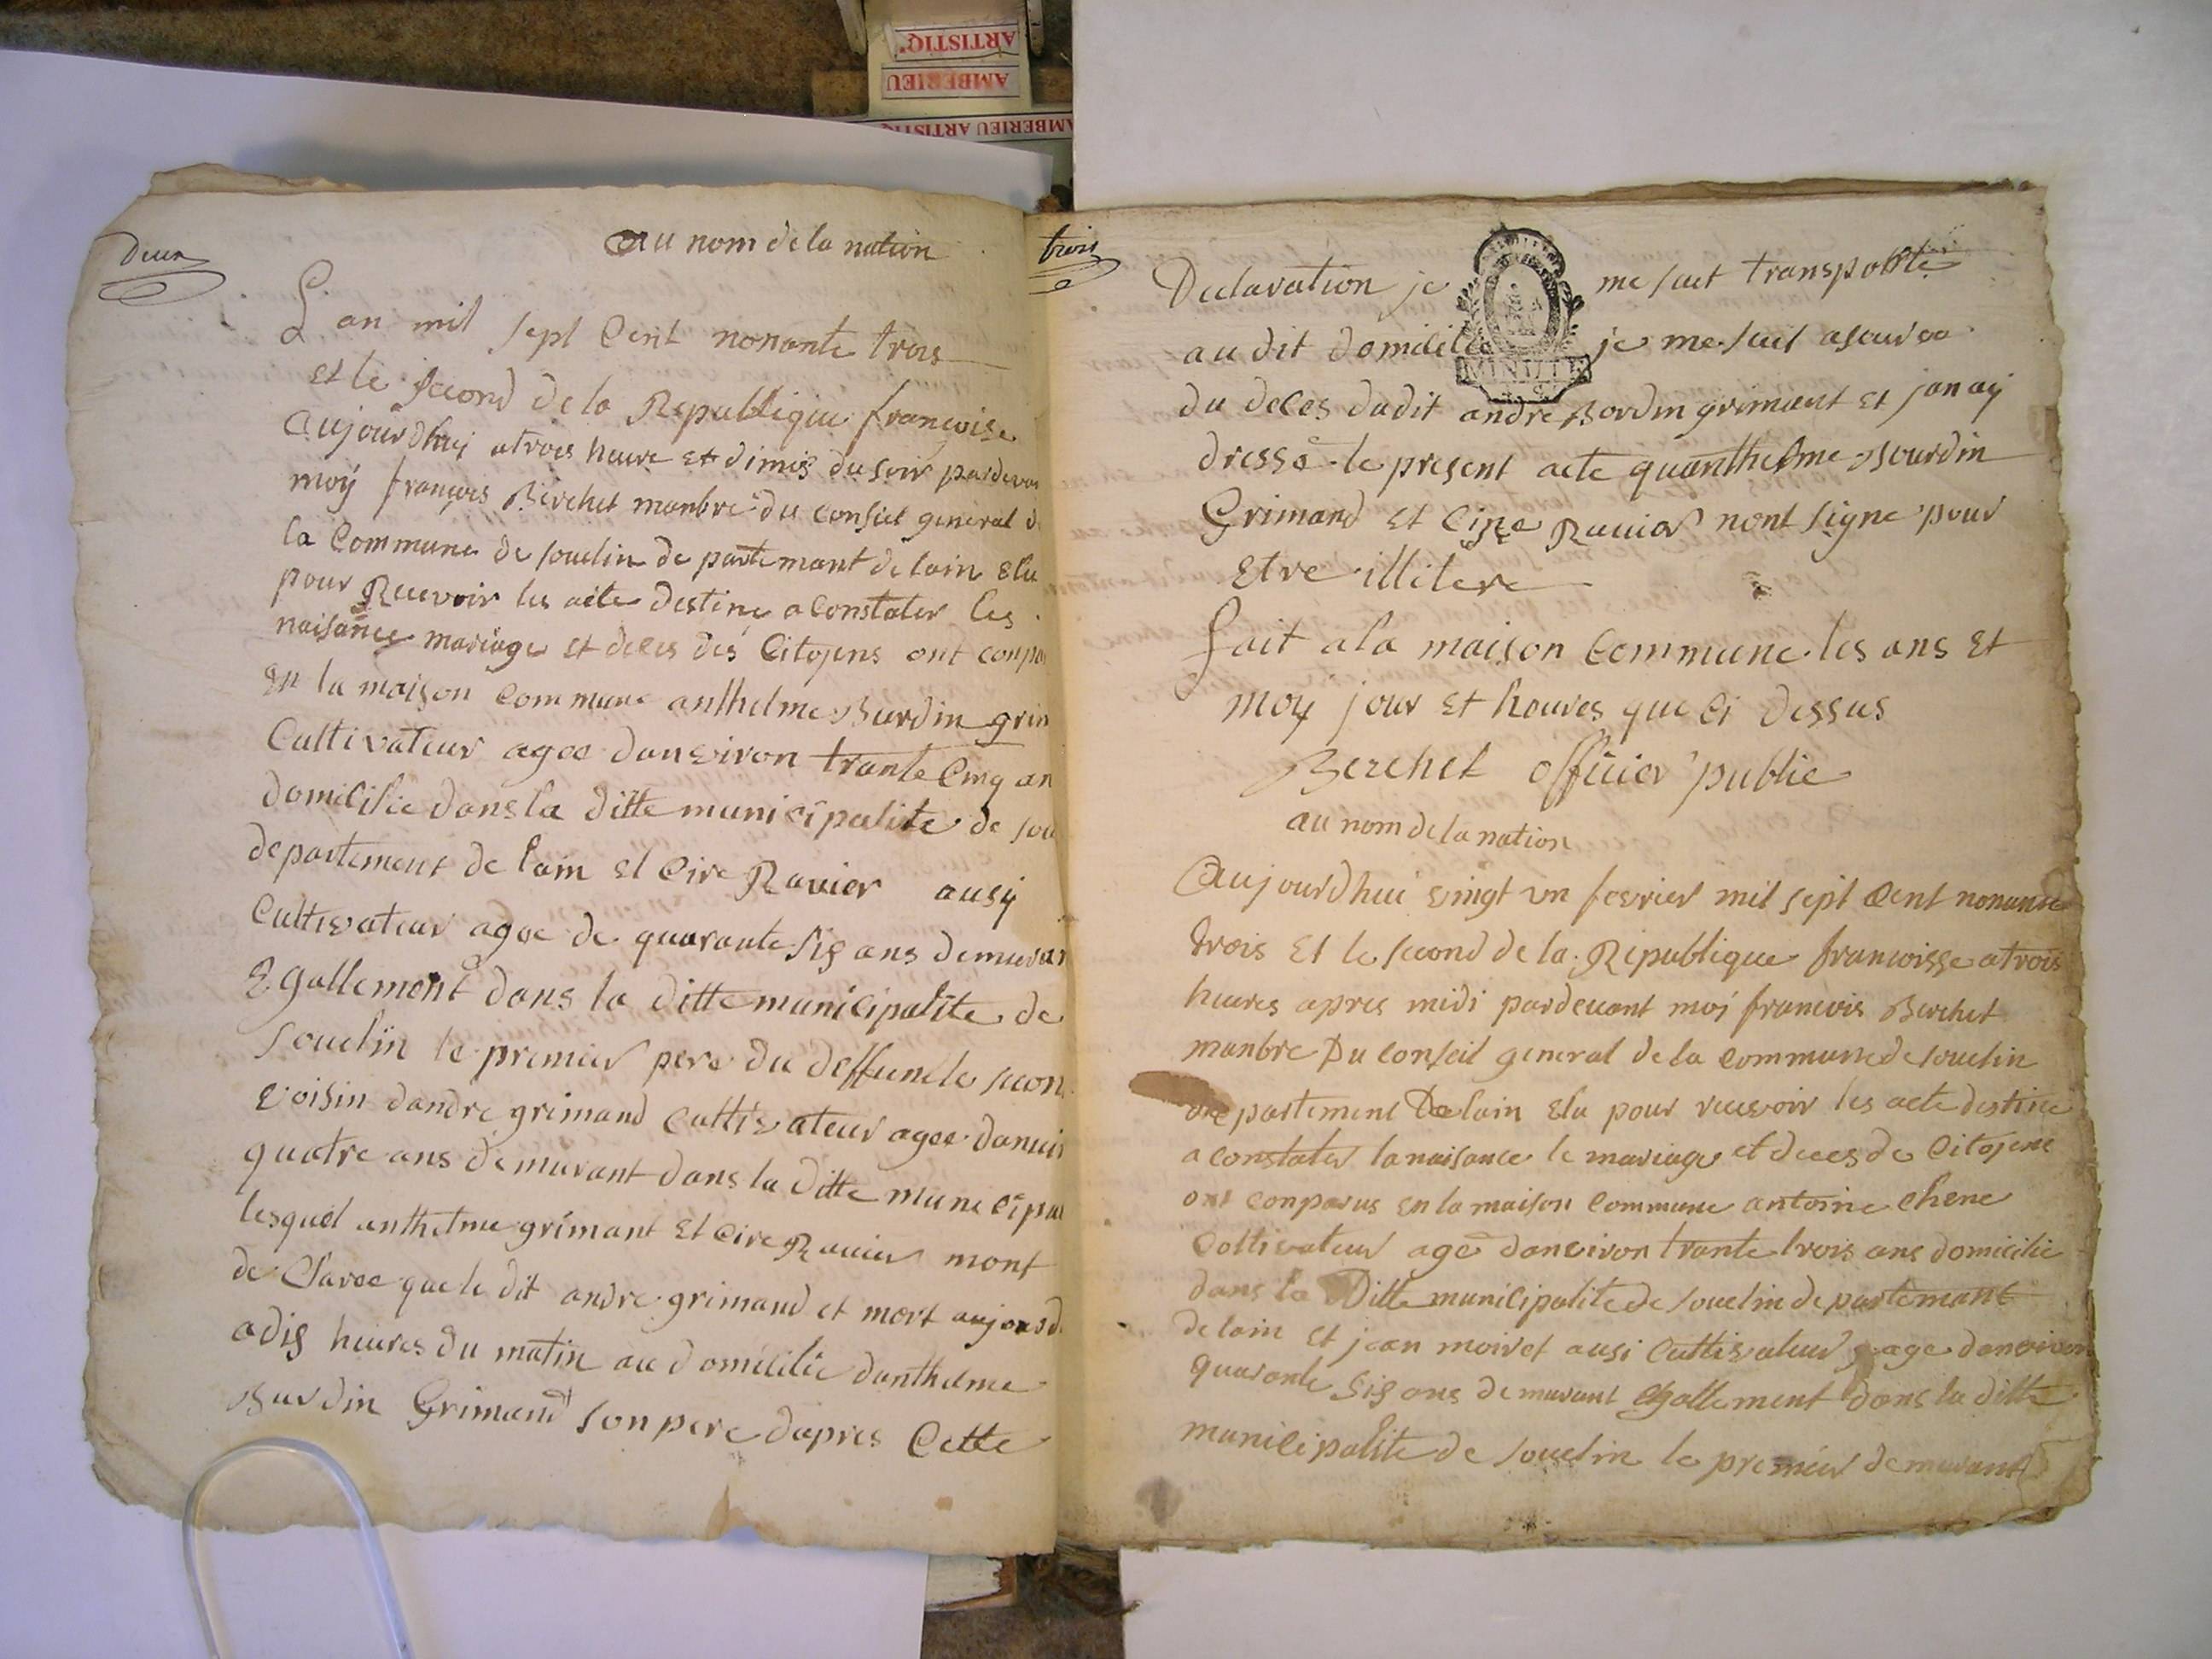 ARTISTIQ'
AMBERIEU
AMBERIEU ARTISTIQ
Deux
au nom de la nation
L an mil sept Cent nonante trois
et le second de la Republique francoise
aujourdhuj atrois heure et dimis du soir pardevan
moÿ françois Berchet manbre du conseil general d
la Commune de souclin de partemant de lain elu
pour Recevoir les acte destine a Constater les
naisance mariage et deces des Citojens ont conpa
en la maison Commune anthelme Burdin grim
Cultivateur agee danviron trante Cinq an
domicilie dans la ditte municipalite de sou
departement de lain et Cire Ravier ausy
Cultivateur agee de quarante sis ans demuran
Egallement dans la ditte municipalite de
souclin le premier pere du deffunct le secon
voisin dandre grimand Cultivateur agee danvir
quatre ans demurant dans la ditte municipal
lesquel anthelme grimant et cire Ravier mont
de Claree que le dit andre grimand et mort aujourd
adis heures du matin au domicilie danthelme
Burdin Grimand son pere dapres Cette
trois
Declaration je me suit transporte
au dit domicille je me suit asuree
MINUTE
du deces dudit andre Bordin grimant et jan aÿ
dressé le present acte quanthelme Bourdin
Grimand et Cire Ravier nont signe pour
Etre illitere
fait ala maison Commune les ans et
moy jour et heures que Ci dessus
Berchet officier public
au nom de la nation
Aujourdhui vingt un fevrier mil sept Cent nonante
trois Et le second de la Republique francoisse atrois
heures apres midi pardevant moj francois Berchet
manbre Du Conseil general de la commune de souclin
departement De lain elu pour recevoir les acte destine
a constater la naisance le mariage et deces de Citojens
ont conparus en la maison Commune antoine Chene
Coltivateur age danviron trante trois ans domicilie
dans la Ditte municipalite de souclin departemant
de lain et jean moiret ausi Cultivateur age danviron
quarante sis ans demurant egallement dans la ditte
municipalite de souclin le premier demurant